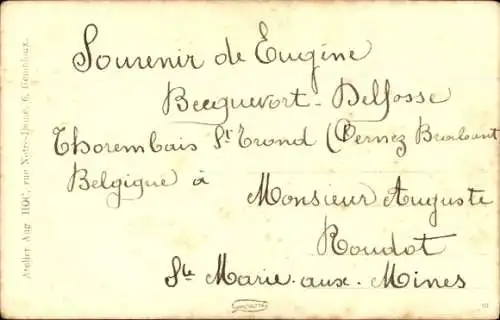 Souvenir de Eugène
Becquevort - Delfosse
Thorembais St Trond (Pernez Brabant
Belgique à
Monsieur Auguste
Roudot
Ste Marie-aux-Mines
Atelier Aug. HOC, rue Notre-Dame, 6, Gembloux.